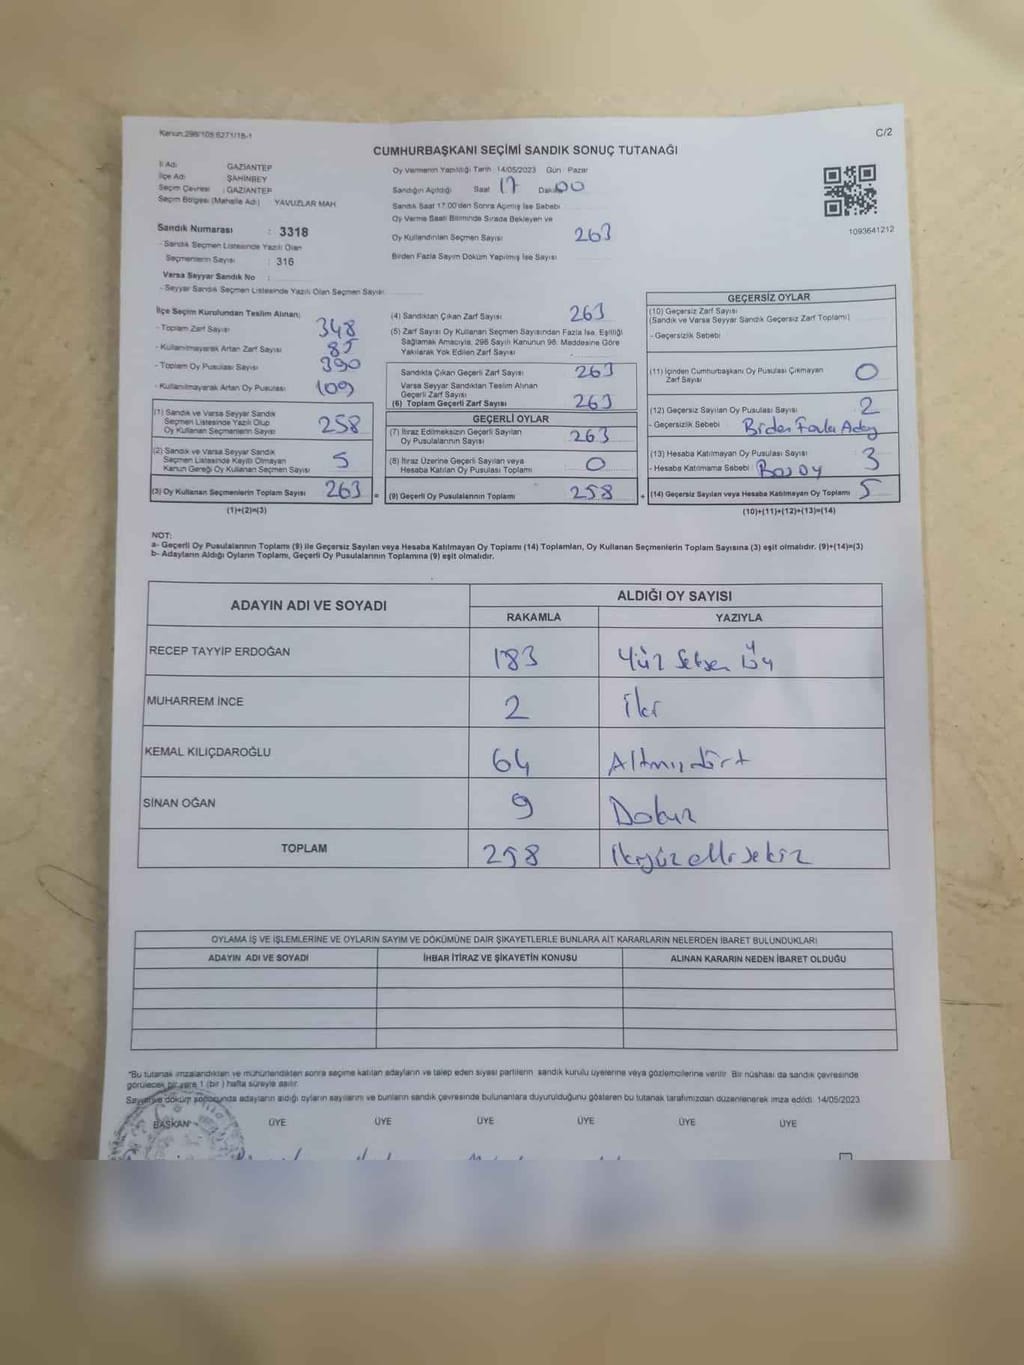 Kanun:298/105 6271/18-1
C/2
CUMHURBAŞKANI SEÇİMİ SANDIK SONUÇ TUTANAĞI
İl Adı GAZİANTEP
İlçe Adı ŞAHİNBEY
Seçim Çevresi : GAZİANTEP
Seçim Bölgesi (Mahalle Adı) YAVUZLAR MAH
Sandık Numarası : 3318
- Sandık Seçmen Listesinde Yazılı Olan
Seçmenlerin Sayısı : 316
Varsa Seyyar Sandık No :
- Seyyar Sandık Seçmen Listesinde Yazılı Olan Seçmen Sayısı
Oy Vermenin Yapıldığı Tarih 14/05/2023 Gün Pazar
Sandığın Açıldığı Saat 17 Dakika 00
Sandık Saat 17.00'den Sonra Açılmış İse Sebebi
Oy Verme Saati Bitiminde Sırada Bekleyen ve
Oy Kullandırılan Seçmen Sayısı 263
Birden Fazla Sayım Döküm Yapılmış İse Sayısı
1093641212
İlçe Seçim Kurulundan Teslim Alınan;
- Toplam Zarf Sayısı 348
- Kullanılmayarak Artan Zarf Sayısı 85
- Toplam Oy Pusulası Sayısı 390
- Kullanılmayarak Artan Oy Pusulası 109
(1) Sandık ve Varsa Seyyar Sandık
Seçmen Listesinde Yazılı Olup
Oy Kullanan Seçmenlerin Sayısı 258
(2) Sandık ve Varsa Seyyar Sandık
Seçmen Listesinde Kayıtlı Olmayan
Kanun Gereği Oy Kullanan Seçmen Sayısı 5
(3) Oy Kullanan Seçmenlerin Toplam Sayısı 263 =
(1)+(2)=(3)
(4) Sandıktan Çıkan Zarf Sayısı 263
(5) Zarf Sayısı Oy Kullanan Seçmen Sayısından Fazla İse, Eşitliği
Sağlamak Amacıyla, 298 Sayılı Kanunun 98. Maddesine Göre
Yakılarak Yok Edilen Zarf Sayısı
Sandıkta Çıkan Geçerli Zarf Sayısı 263
Varsa Seyyar Sandıktan Teslim Alınan
Geçerli Zarf Sayısı
(6) Toplam Geçerli Zarf Sayısı 263
GEÇERLİ OYLAR
(7) İtiraz Edilmeksizin Geçerli Sayılan
Oy Pusulalarının Sayısı 263
(8) İtiraz Üzerine Geçerli Sayılan veya
Hesaba Katılan Oy Pusulası Toplamı 0
(9) Geçerli Oy Pusulalarının Toplamı 258 +
GEÇERSİZ OYLAR
(10) Geçersiz Zarf Sayısı
(Sandık ve Varsa Seyyar Sandık Geçersiz Zarf Toplamı)
- Geçersizlik Sebebi
(11) İçinden Cumhurbaşkanı Oy Pusulası Çıkmayan
Zarf Sayısı 0
(12) Geçersiz Sayılan Oy Pusulası Sayısı 2
- Geçersizlik Sebebi Birden Fazla Aday
(13) Hesaba Katılmayan Oy Pusulası Sayısı 3
- Hesaba Katılmama Sebebi Boş Oy
(14) Geçersiz Sayılan veya Hesaba Katılmayan Oy Toplamı 5
(10)+(11)+(12)+(13)=(14)
NOT:
a- Geçerli Oy Pusulalarının Toplamı (9) ile Geçersiz Sayılan veya Hesaba Katılmayan Oy Toplamı (14) Toplamları, Oy Kullanan Seçmenlerin Toplam Sayısına (3) eşit olmalıdır. (9)+(14)=(3)
b- Adayların Aldığı Oyların Toplamı, Geçerli Oy Pusulalarının Toplamına (9) eşit olmalıdır.
ADAYIN ADI VE SOYADI ALDIĞI OY SAYISI
RAKAMLA YAZIYLA
RECEP TAYYİP ERDOĞAN 183 Yüz Seksen üç
MUHARREM İNCE 2 İki
KEMAL KILIÇDAROĞLU 64 Altmış dört
SİNAN OĞAN 9 Dokuz
TOPLAM 258 ikiyüz elli sekiz
OYLAMA İŞ VE İŞLEMLERİNE VE OYLARIN SAYIM VE DÖKÜMÜNE DAİR ŞİKAYETLERLE BUNLARA AİT KARARLARIN NELERDEN İBARET BULUNDUKLARI
ADAYIN ADI VE SOYADI İHBAR İTİRAZ VE ŞİKAYETİN KONUSU ALINAN KARARIN NEDEN İBARET OLDUĞU
"Bu tutanak imzalandıktan ve mühürlendikten sonra seçime katılan adayların ve talep eden siyasi partilerin sandık kurulu üyelerine veya gözlemcilerine verilir. Bir nüshası da sandık çevresinde
görülecek bir yere 1 (bir) hafta süreyle asılır.
Sayım ve döküm sonucunda adayların aldığı oyların sayılarını ve bunların sandık çevresinde bulunanlara duyurulduğunu gösteren bu tutanak tarafımızdan düzenlenerek imza edildi. 14/05/2023
BAŞKAN ÜYE ÜYE ÜYE ÜYE ÜYE ÜYE